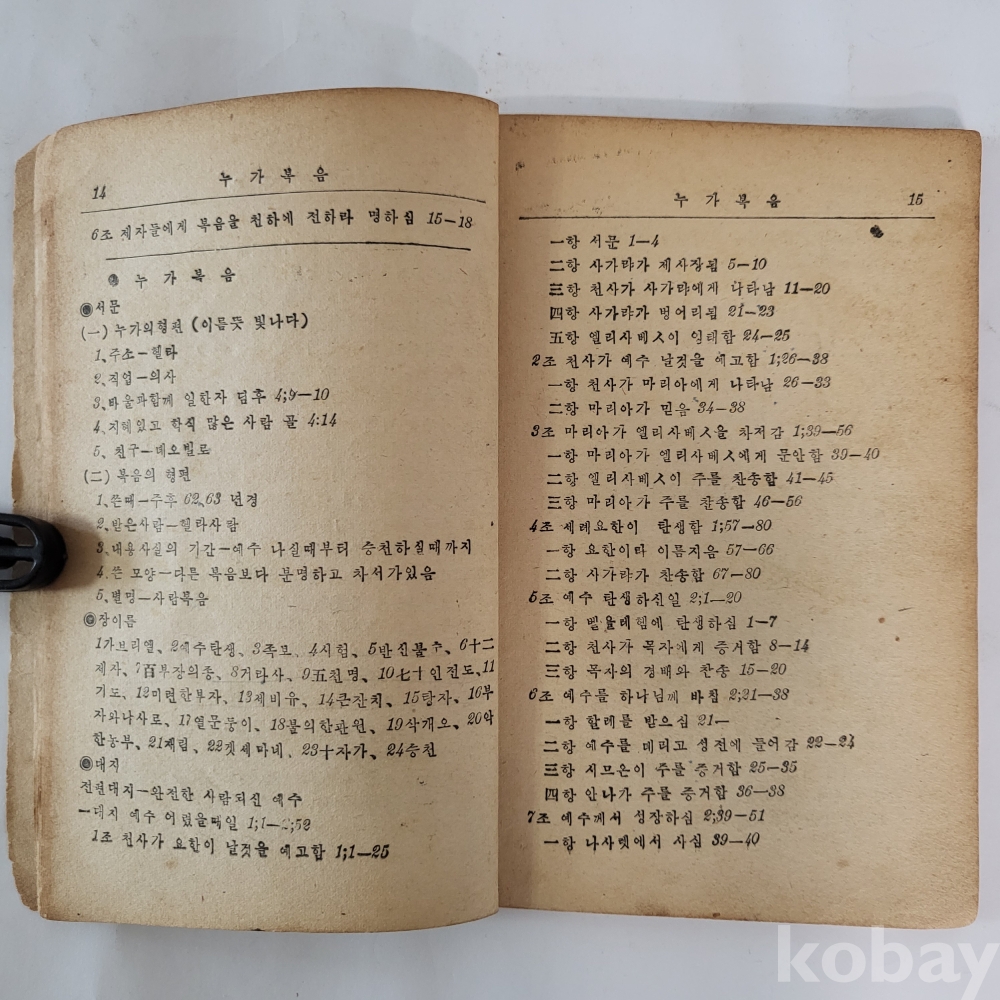 14
누가복음
6조 제자들에게 복음을 천하에 전하라 명하심 15—18
누가복음
◉서문
(一) 누가의형편 (이름뜻 빛나다)
1、주소—헬라
2、직업—의사
3、바울과함께 일한자 딤후 4;9—10
4、지혜있고 학식 많은 사람 골 4:14
5、친구—데오빌로
(二) 복음의 형편
1、쓴때—주후 62、63 년경
2、받은사람—헬라사람
3、내용사실의 기간—예수 나실때부터 승천하실때까지
4、쓴 모양—다른 복음보다 분명하고 차서가있음
5、별명—사람복음
◉장이름
1가브리엘、2예수탄생、3족보、4시험、5반신불수、6十二
제자、7百부장의종、8거라사、9五천명、10七十인전도、11
기도、12미련한부자、13제비유、14큰잔치、15탕자、16부
자와나사로、17열문둥이、18불의한관원、19삭개오、20악
한농부、21재림、22겟세마네、23十자가、24승천
◉대지
전편대지—완전한 사람되신 예수
一대지 예수 어렸을때일 1;1—2;52
1조 천사가 요한이 날것을 예고함 1;1—25
누가복음
15
一항 서문 1—4
二항 사가랴가 제사장됨 5—10
三항 천사가 사가랴에게 나타남 11—20
四항 사가랴가 벙어리됨 21—23
五항 엘리사베ㅅ이 잉태함 24—25
2조 천사가 예수 날것을 예고함 1;26—38
一항 천사가 마리아에게 나타남 26—33
二항 마리아가 믿음 34—38
3조 마리아가 엘리사베ㅅ을 차저감 1;39—56
一항 마리아가 엘리사베ㅅ에게 문안함 39—40
二항 엘리사베ㅅ이 주를 찬송함 41—45
三항 마리아가 주를 찬송함 46—56
4조 세례요한이 탄생함 1;57—80
一항 요한이라 이름지음 57—66
二항 사가랴가 찬송함 67—80
5조 예수 탄생하신일 2;1—20
一항 벧을레헴에 탄생하심 1—7
二항 천사가 목자에게 증거함 8—14
三항 목자의 경배와 찬송 15—20
6조 예수를 하나님께 바침 2;21—38
一항 할례를 받으심 21—
二항 예수를 데리고 성전에 들어감 22—24
三항 시므온이 주를 증거함 25—35
四항 안나가 주를 증거함 36—38
7조 예수께서 성장하심 2;39—51
一항 나사렛에서 사심 39—40
kobay